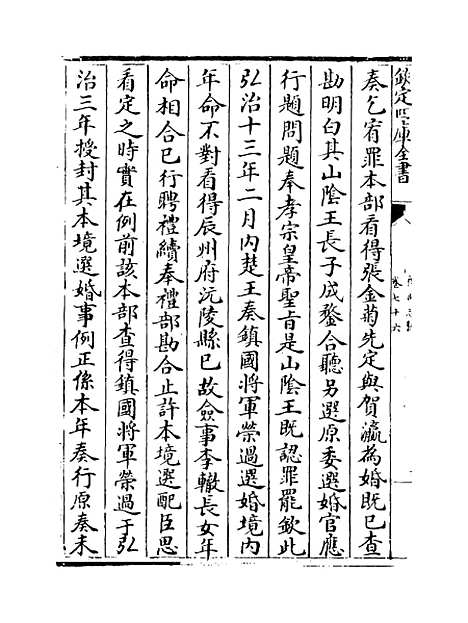 欽定四庫全書
卷七十六
奏乞宥罪本部看得張金菊先定與賀瀛為婚既已查
勘明白其山陰王長子成鍪合聽另選原委選婚官應
行題問題奉孝宗皇帝聖旨是山陰王既認罪罷欽此
弘治十三年二月內楚王奏鎮國將軍榮過選婚境內
年命不對看得辰州府沅陵縣已故僉事李轍長女年
命相合已行聘禮續奉禮部勘合止許本境選配臣思
看定之時實在例前該本部查得鎮國將軍榮過于弘
治三年授封其本境選婚事例正係本年奏行原奏未